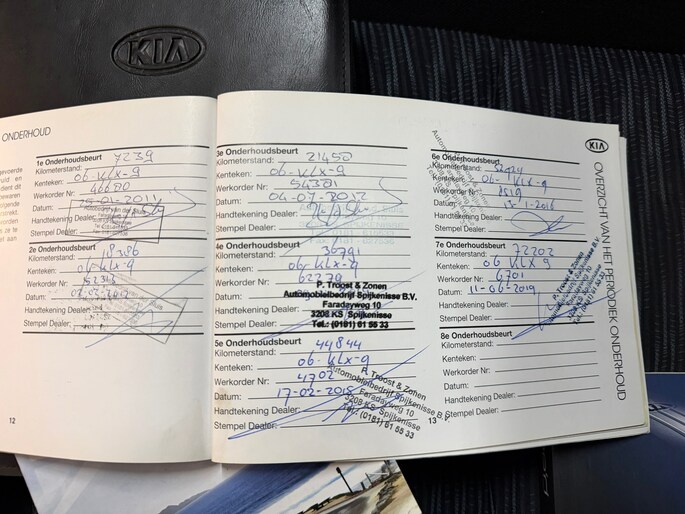 KIA
ONDERHOUD
1e Onderhoudsbeurt
Kilometerstand: 7239
Kenteken: 06-KLX-9
Werkorder Nr: 46680
Datum:
Handtekening Dealer:
Stempel Dealer:
2e Onderhoudsbeurt
Kilometerstand: 18386
Kenteken: 06-KLX-9
Werkorder Nr:
Datum:
Handtekening Dealer:
Stempel Dealer:
12
3e Onderhoudsbeurt
Kilometerstand: 21450
Kenteken: 06-KLX-9
Werkorder Nr: 54381
Datum: 04-07-2012
Handtekening Dealer:
Stempel Dealer:
4e Onderhoudsbeurt
Kilometerstand: 36791
Kenteken: 06-KLX-9
Werkorder Nr: 62279
Datum:
Handtekening Dealer:
Stempel Dealer:
P. Troost & Zonen
Automobielbedrijf Spijkenisse B.V.
Faradayweg 10
3208 KS Spijkenisse
Tel.: (0181) 61 55 33
5e Onderhoudsbeurt
Kilometerstand: 44844
Kenteken: 06-KLX-9
Werkorder Nr: 4702
Datum: 17-02-2015
Handtekening Dealer:
Stempel Dealer:
P. Troost & Zonen
Automobielbedrijf Spijkenisse B.V.
Faradayweg 10
3208 KS Spijkenisse
Tel.: (0181) 61 55 33
13
6e Onderhoudsbeurt
Kilometerstand:
Kenteken: 06-KLX-9
Werkorder Nr:
Datum:
Handtekening Dealer:
Stempel Dealer:
7e Onderhoudsbeurt
Kilometerstand: 72202
Kenteken: 06 KLX 9
Werkorder Nr: 6701
Datum: 11-06-2019
Handtekening Dealer:
Stempel Dealer:
P. Troost & Zonen
8e Onderhoudsbeurt
Kilometerstand:
Kenteken:
Werkorder Nr:
Datum:
Handtekening Dealer:
Stempel Dealer:
KIA
OVERZICHT VAN HET PERIODIEK ONDERHOUD